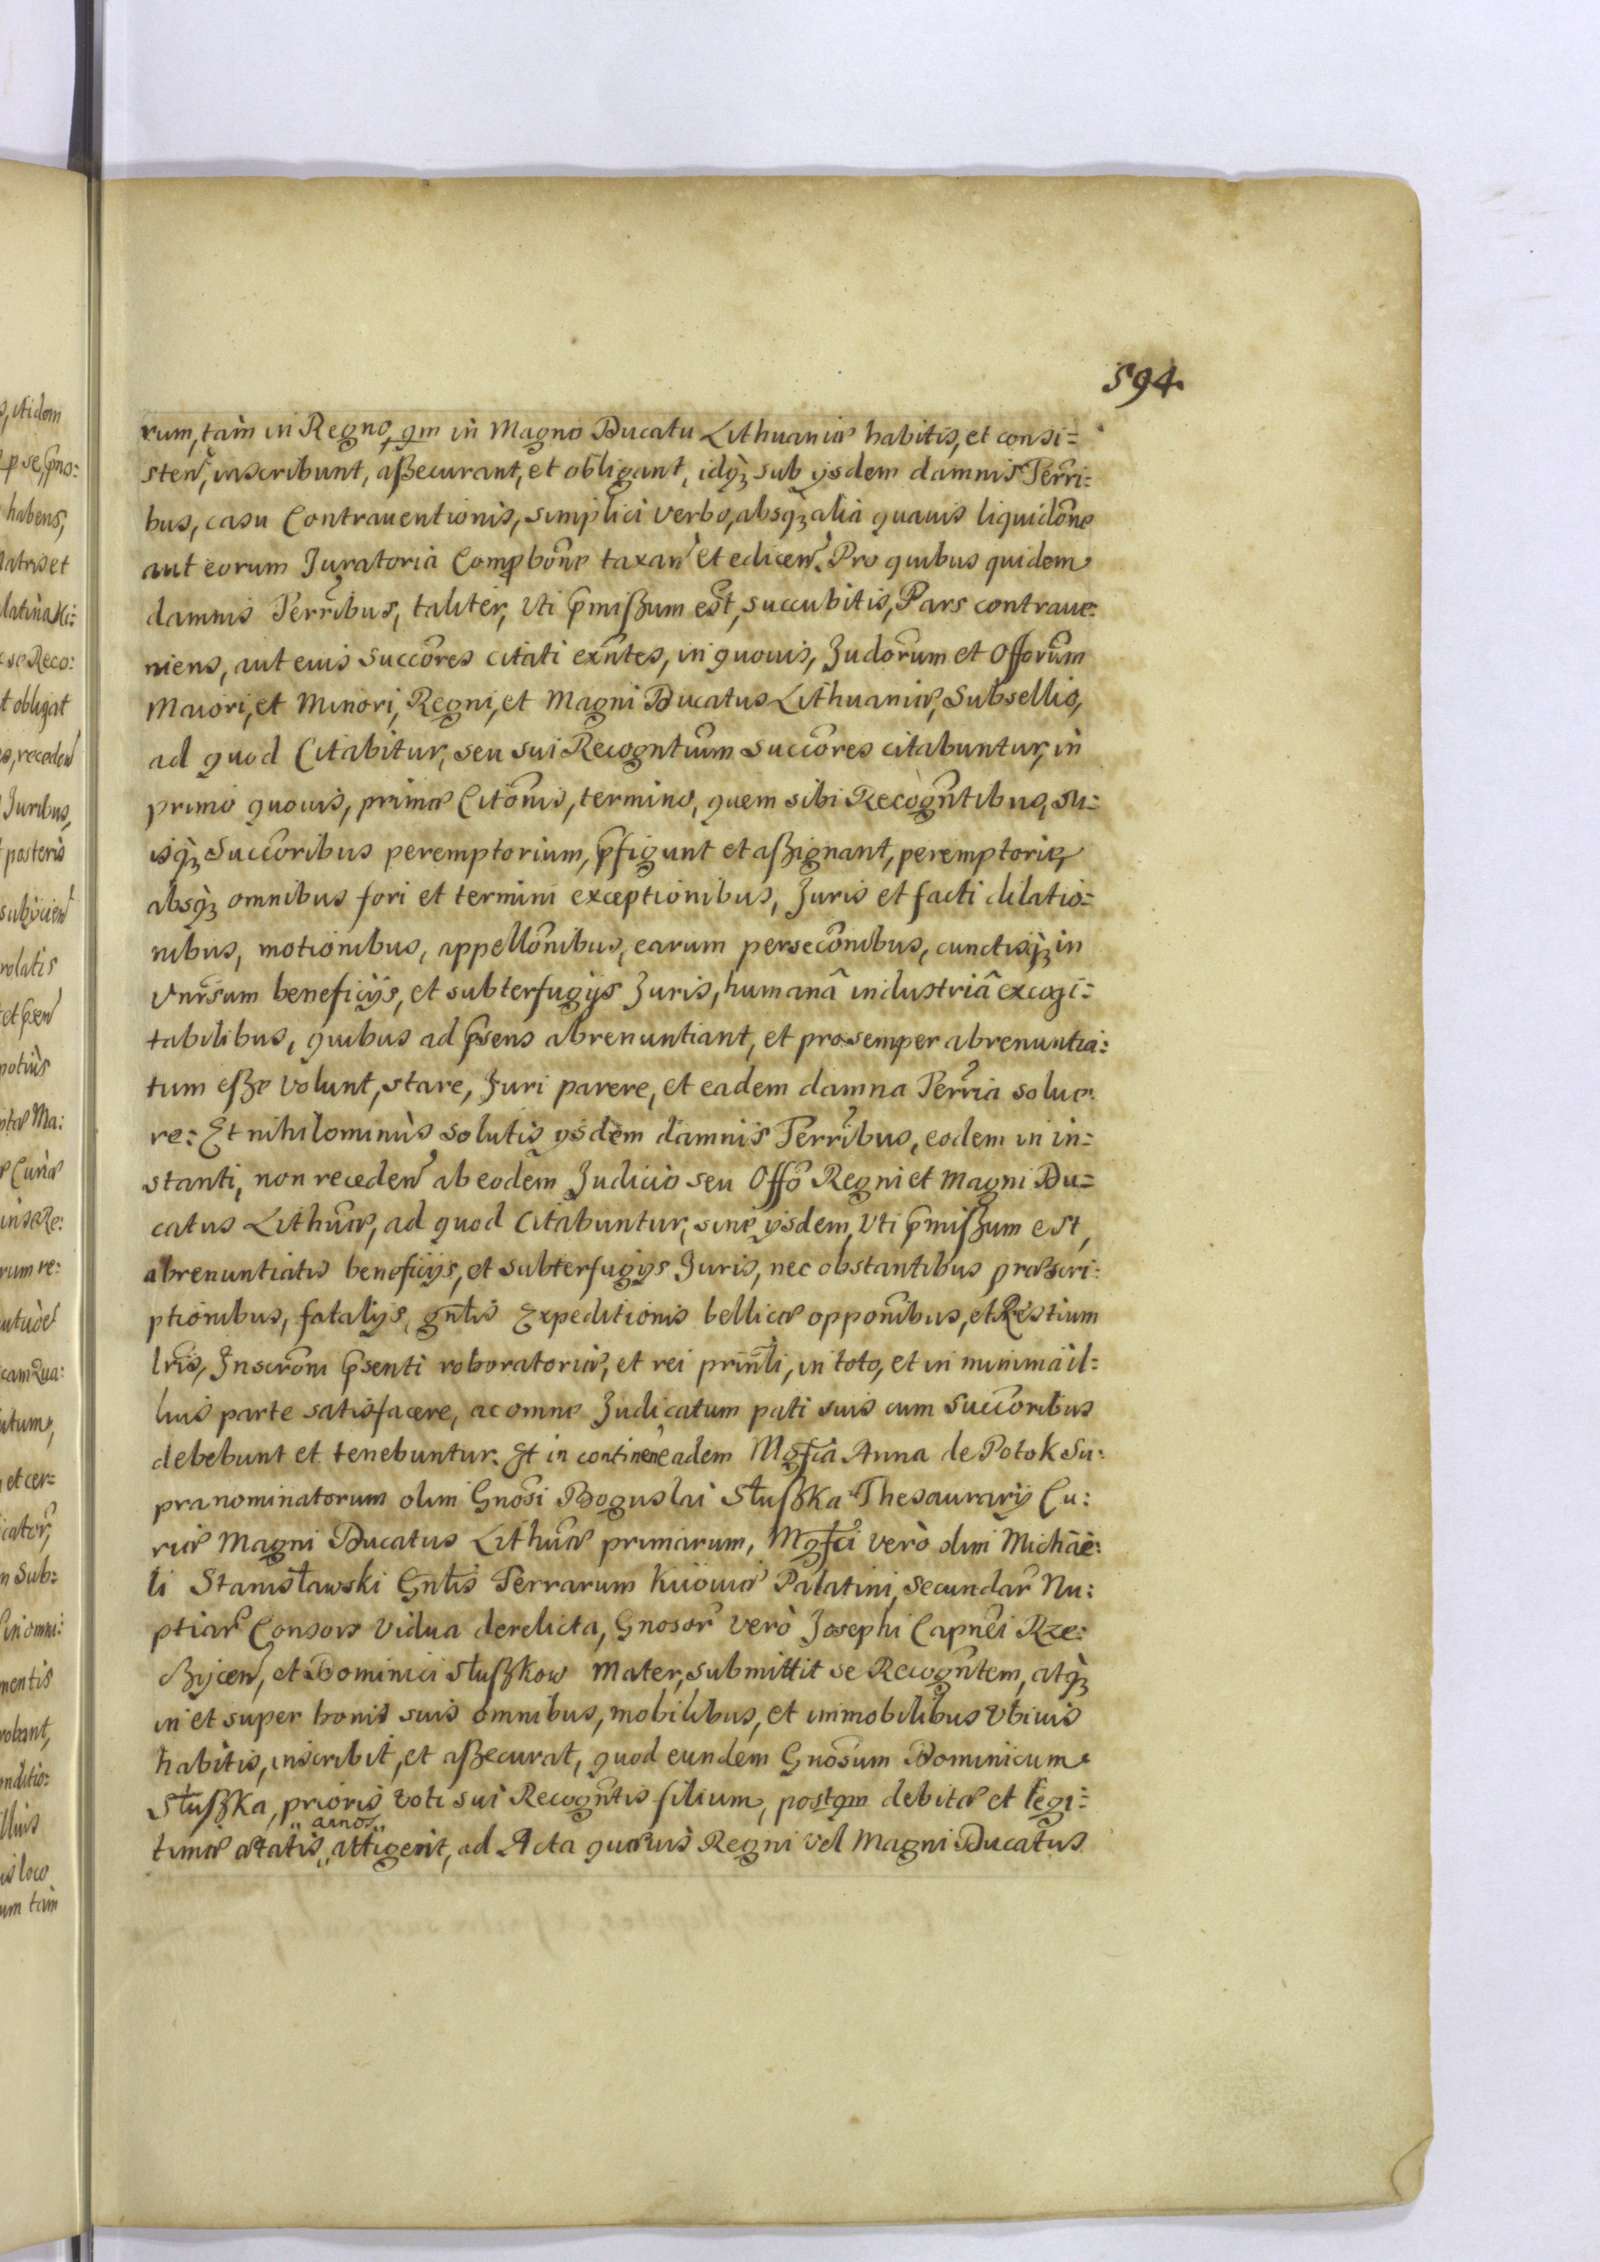 594.
rum, tàm in Regno, qm in Magno Ducatu Lithuaniæ habitis, et consi=
sten, inscribunt, aßecurant, et obligant, idq3 sub ijsdem damnis Terri:
bus, casu Contrauentionis, simplici verbo, absq3 alia quauis liquidone
aut eorum Juratoria Comprobone taxan et edicen. Pro quibus quidem
damnis Terribus, taliter, Vti pmißum est, succubitis, Pars contraue:
niens, aut euis Succores citati exntes, in quouis, Judorum et Offorum
Maiori, et Minori, Regni, et Magni Ducatus Lithuaniæ, Subsellio,
ad quod Citabitur, seu sui Recogntium Succores citabuntur, in
primo quouis, primæ Citonis, termino, quem sibi Recogntibus, su=
isq3 Succoribus peremptorium, pfigunt et aßignant, peremptorie,
absq3 omnibus fori et termini exceptionibus, Juris et facti dilatio=
nibus, motionibus, appellonibus, earum perseconibus, cunctisq3 in
Vnrsum beneficijs, et subterfugijs Juris, humanâ industriâ excogi=
tabilibus, quibus ad psens abrenuntiant, et pro semper abrenuntia:
tum eße volunt, stare, Juri parere, et eadem damna Terria solue:
re: Et nihilominùs solutis ijsdem damnis Terribus, eodem in in=
stanti, non receden ab eodem Judicio seu Offo Regni et Magni Du=
catus Lithuæ, ad quod Citabuntur, sine ijsdem, Vti pmißum est,
abrenuntiatis beneficijs, et subterfugijs Juris, nec obstantibus præscri:
ptionibus, fatalijs, gnlis Expeditionis bellicæ opponibus, et Restium
lris, Inscroni psenti roboratoriæ, et rei prinli, in toto, et in minima il=
lius parte satisfacere, ac omne Judicatum pati suis cum Succoribus
debebunt et tenebuntur. Et in continen eadem Mgfca Anna de Potok Su:
pra nominatorum olim Gnosi Boguslai Słußka Thesaurarij Cu:
riæ Magni Ducatus Lithuæ primarum, Mgfci verò olim Michaë:
li Stanisławski Gnlis Terrarum Kiiouiæ Palatini, secundar Nu:
ptiar Consors Vidua derelicta, Gnosor verò Josephi Capnei Rze:
czycen, et Dominici Słußkow Mater, submittit se Recogntem, atq3
in et super bonis suis omnibus, mobilibus, et immobilibus Vbiuis
habitis, inscribit, et aßecurat, quod eundem Gnosum Dominicum
Słußka, prioris voti sui Recogntis filium, postqm debitæ et legi=
annos
timæ ætatis attigerit, ad Acta quæuis Regni vel Magni Ducatus